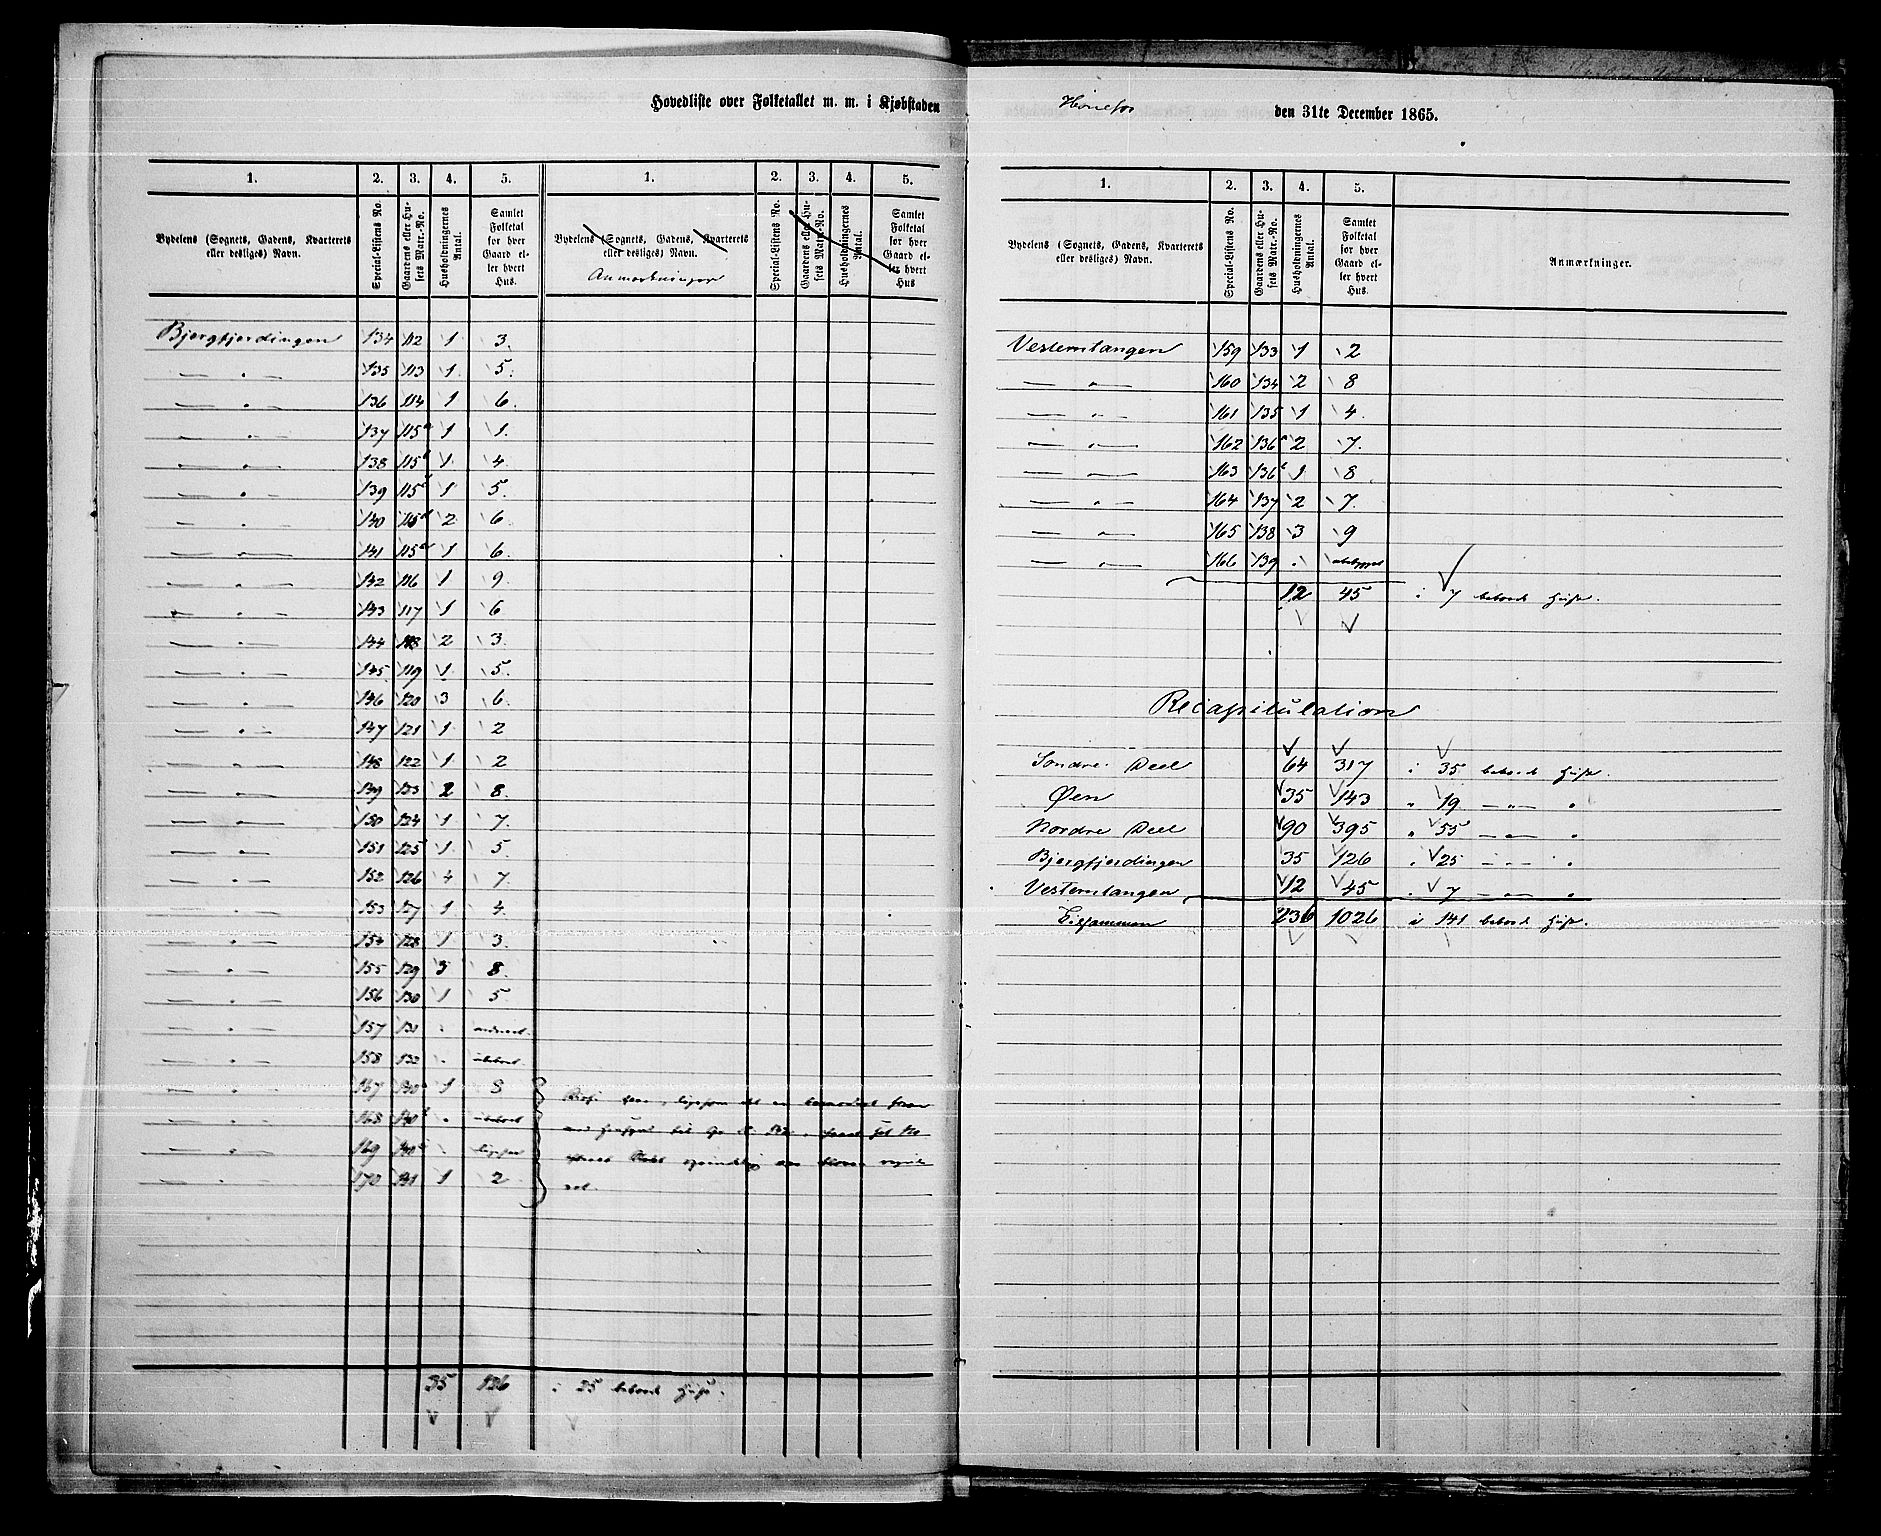 Hovedliste over Folketallet m. m. i Kjøbstaden Hönefos den 31te December 1865.
1. 2. 3. 4. 5. 1. 2. 3. 4. 5.
Bydelens (Sognets, Gadens, Kvarterets eller desliges) Navn. Special-Listens No. Gaardens eller Husets Matr.-No. Husholdningernes Antal. Samlet Folketal for hver Gaard eller hvert Hus. Bydelens (Sognets, Gadens, Kvarterets eller desliges) Navn. Special-Listens No. Gaardens eller Husets Matr.-No. Husholdningernes Antal. Samlet Folketal for hver Gaard eller hvert Hus
Anmærkninger
Bjergfjerdingen 134 112 1 3.
— " — 135 113 1 5.
— " — 136 114 1 6.
— " — 137 115a 1 1.
— " — 138 115b 1 4.
— " — 139 115c 1 5.
— " — 140 115d 2 6.
— " — 141 115e 1 6.
— " — 142 116 1 9.
— " — 143 117 1 6
— " — 144 118 2 3.
— " — 145 119 1 5.
— " — 146 120 3 6.
— " — 147 121 1 2
— " — 148 122 1 2
— " — 149 123 2 8.
— " — 150 124 1 7.
— " — 151 125 1 5.
— " — 152 126 4 7.
— " — 153 127 1 4.
— " — 154 128 1 3.
— " — 155 129 3 8.
— " — 156 130 1 5.
— " — 157 131 "
— " — 158 132 " ubeboet
— " — 167 140a 1 8
— " — 168 140b " ubeboet
— " — 169 140c "
— " — 170 141 1 2
35 136 i 25 beboede Huse.
1. 2. 3. 4. 5.
Bydelens (Sognets, Gadens, Kvarterets eller desliges) Navn. Special-Listens No. Gaardens eller Husets Matr.-No. Husholdningernes Antal. Samlet Folketal for hver Gaard eller hvert Hus. Anmærkninger.
Vesterntangen 159 133 1 2
— " — 160 134 2 8
— " — 161 135 1 4.
— " — 162 136a 2 7.
— " — 163 136b 1 8
— " — 164 137 2 7.
— " — 165 138 3 9
— " — 166 139 "
12 45 i 7 beboede Huse.
Recapitulation
Söndre Deel 64 317 i 35 beboede Huse.
Øen 35 143 " 19 — " — "
Nordre Deel 90 395 " 55 — " — "
Bjergfjerdingen 35 126 " 25 — " — "
Vesterntangen 12 45 " 7 — " — "
Tilsammen 236 1026 i 141 beboede Huse.